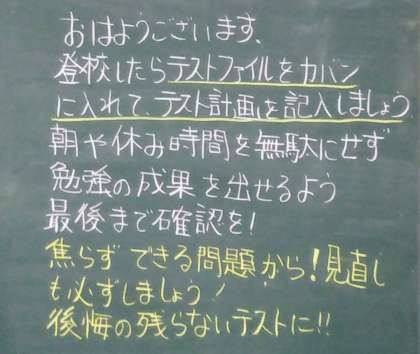 おはようございます、
登校したらテストファイルをカバン
に入れて、テスト計画を記入しましょう
朝や休み時間を無駄にせず
勉強の成果を出せるよう
最後まで確認を!
焦らず できる問題から!見直し
も必ずしましょう!
後悔の残らないテストに!!